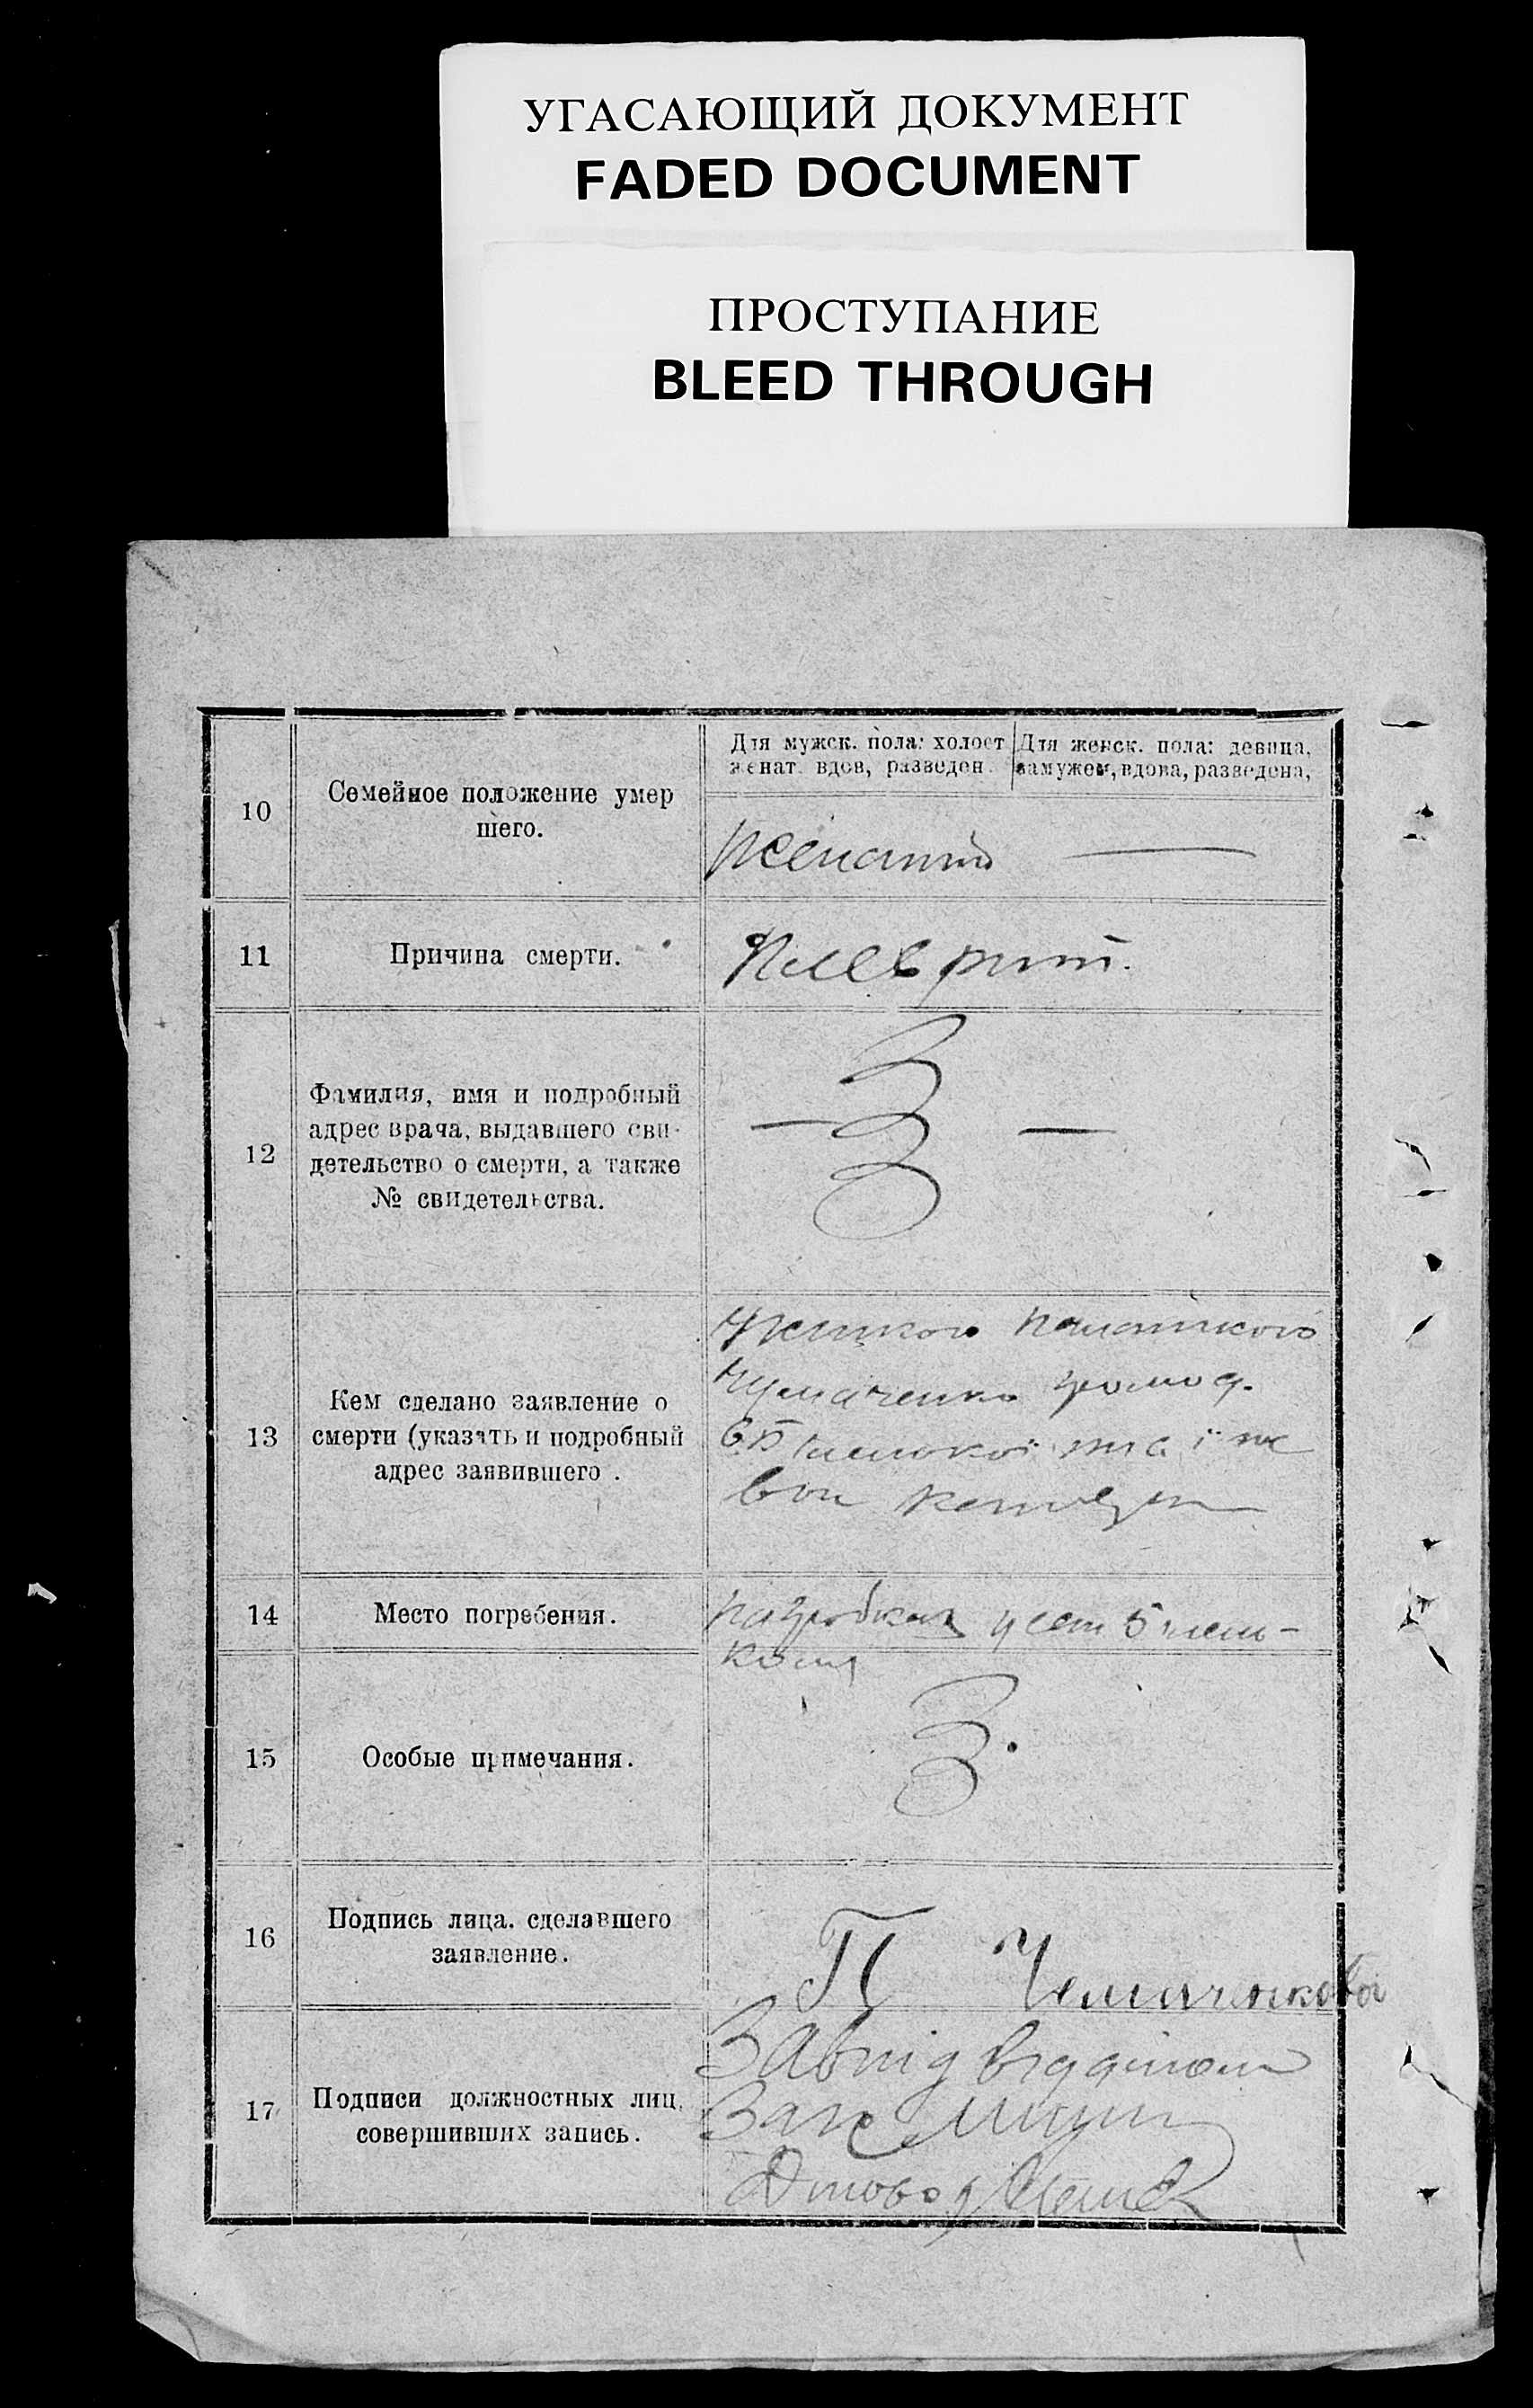 УГАСАЮЩИЙ ДОКУМЕНТ
FADED DOCUMENT
ПРОСТУПАНИЕ
BLEED THROUGH
Для мужск. пола: холост
женат. вдов, разведен.
Для женск. пола: девица,
замужем, вдова, разведена,
10
Семейное положение умер
шего.
женатий
11
Причина смерти.
Плеврит.
12
Фамилия, имя и подробный
адрес врача, выдавшего сви-
детельство о смерти, а также
№ свидетельства.
13
Кем сделано заявление о
смерти (указать и подробный
адрес заявившего.
Чумаченко громад.
14
Место погребения.
15
Особые примечания.
16
Подпись лица. сделавшего
заявление.
П Чемаченкова
17
Подписи должностных лиц,
совершивших запись.
Завпідвідділом
Діловод